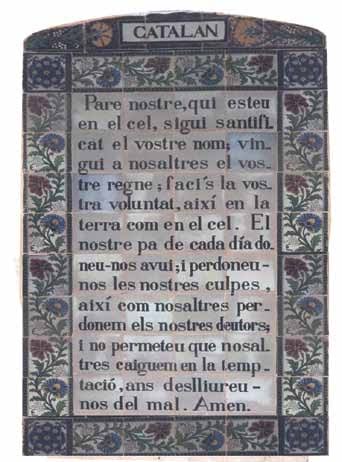 CATALAN
Pare nostre, qui esteu
en el cel, sigui santifi-
cat el vostre nom; vin-
gui a nosaltres el vos-
tre regne; faci's la vos-
tra voluntat, així en la
terra com en el cel. El
nostre pa de cada día do-
neu-nos avui; i perdoneu-
nos les nostres culpes,
així com nosaltres per-
donem els nostres deutors;
i no permeteu que nosal-
tres caiguem en la temp-
tació, ans deslliureu-
nos del mal. Amen.